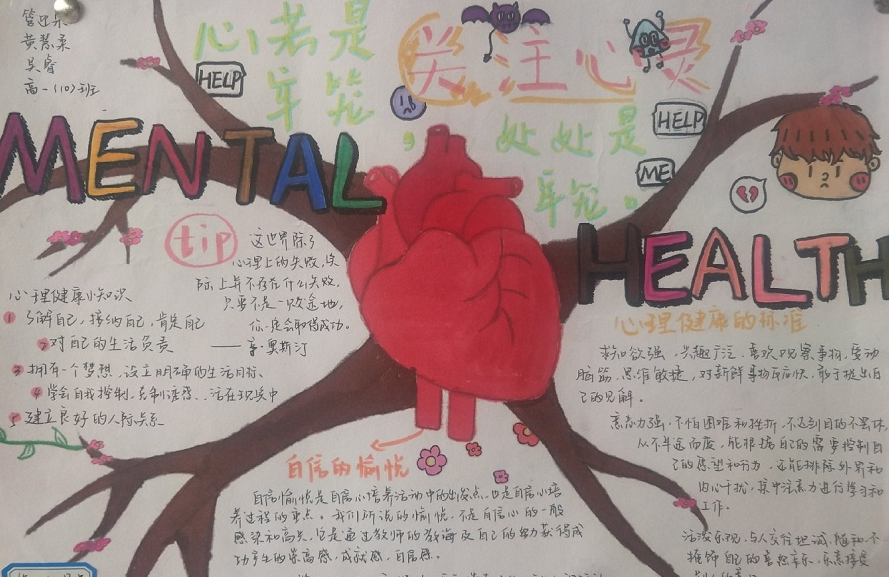 黄慧柔
吴睿
高一(10)班
心若是
牢笼，
处处是
牢笼。
关注心灵
HELP
HELP
ME
MENTAL
HEALTH
tip
这世界除了
心理上的失败，实
际上并不存在什么失败，
只要不是一败涂地，
你一定会取得成功。
——亨·奥斯汀
心理健康小知识
1 了解自己，接纳自己，肯定自己
2 对自己的生活负责
3 拥有一个梦想，设立明确的生活目标
4 学会自我控制，克制 活在现实中
5 建立良好的人际关系
心理健康的标准
求知欲强，兴趣广泛，喜欢观察事物，爱动
脑筋，思维敏捷，对新鲜事物反应快，敢于提出自
己的见解。
意志力强，不怕困难和挫折，不达到目的不罢休，
从不半途而废，能根据自己的需要控制自
己的愿望和行为，还能排除外界和
内心干扰，集中注意力进行学习和
工作。
活泼乐观，与人交往坦诚，随和，不
掩饰自己的喜怒哀乐，乐意接受
自信的愉悦
自信愉悦是自信心培养活动中的出发点，也是自信心培
养过程的重点。我们所说的愉悦，不是自信心的一般
感染和高兴，它是通过教师的教海及自己的努力获得成
功产生的崇高感，成就感，自信感。